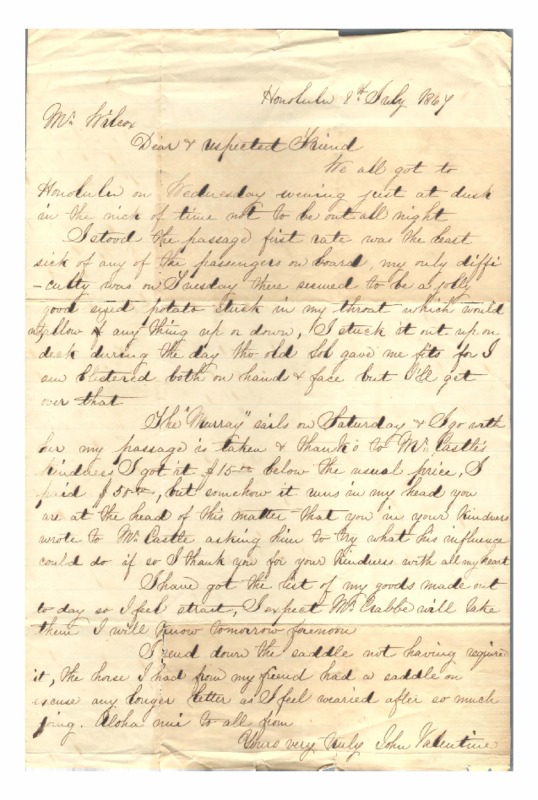 Honolulu 9th July 1867
Mr Wilcox
Dear & respected Friend
We all got to
Honolulu on Wednesday evening just at dusk
in the nick of time not to be out all night
I stood the passage first rate was the least
sick of any of the passengers on board, my only diffi
-culty was on Tuesday there seemed to be a jolly
good sized potato stuck in my throat which would
not allow of any thing up or down, I stuck it out up on
deck during the day tho old Sol gave me fits for I
am blistered both on hand & face but I'll get
over that
The "Murray" sails on Saturday & I go with
her my passage is taken & thanks to Mr Castle's
kindness I got it $15 00 below the usual price, I
paid $50 00, but somehow it runs in my head you
are at the head of this matter that you in your kindness
wrote to Mr Castle asking him to try what his influence
could do if so I thank you for your kindness with all my heart
I have got the list of my goods made out
to day so I feel straet, I expect Mr Crabbe will take
them I will know tomorrow forenoon
I send down the saddle not having required
it, the horse I had from my friend had a saddle on
excuse any longer letter as I feel wearied after so much
going. Aloha nui to all from
Yours very truly John Valentine